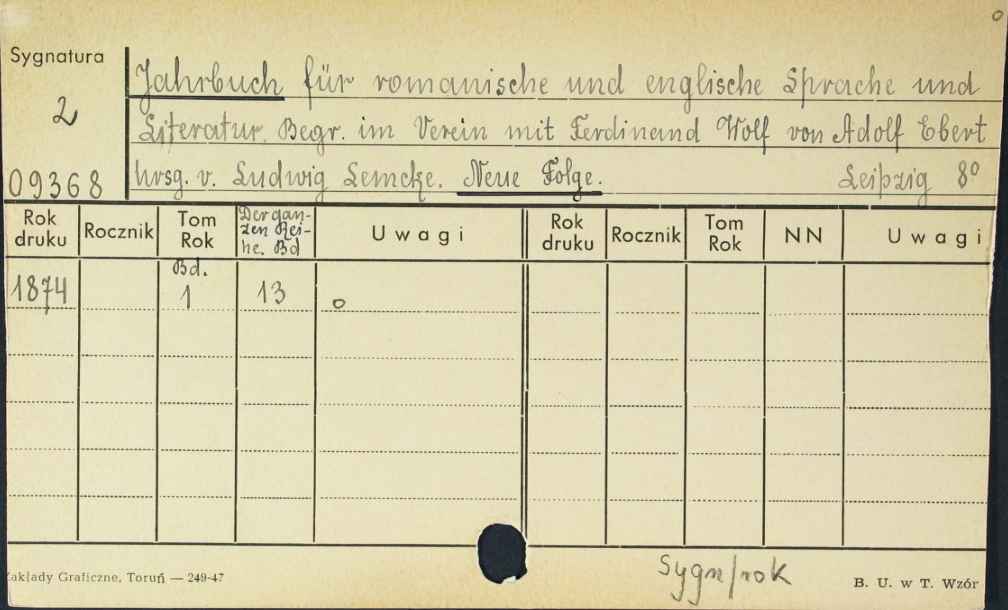 o
Sygnatura
2
09368
Jahrbuch für romanische und englische Sprache und
Literatur. Begr. im Verein mit Ferdinand Wolf von Adolf Ebert
hrsg. v. Ludwig Lemcke. Neue Folge. Leipzig 8º
Rok druku Rocznik Tom Rok Der gan-zen Rei-he. Bd Uwagi Rok druku Rocznik Tom Rok NN Uwagi
Bd.
1874 1 13 o
Sygn/rok
Zakłady Graficzne, Toruń — 249-47 B. U. w T. Wzór